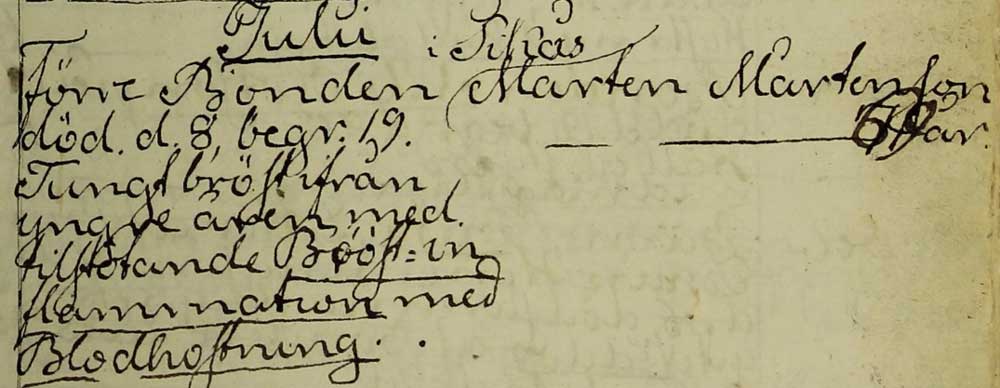 Julii i Sikås
Förre Bonden Mårten Mårtenson
död. d. 8, begr: 19. — — år.
Tungt bröst ifrån
yngre åren med
tilstötande Bröst-in
flammation med
Blodhostning.